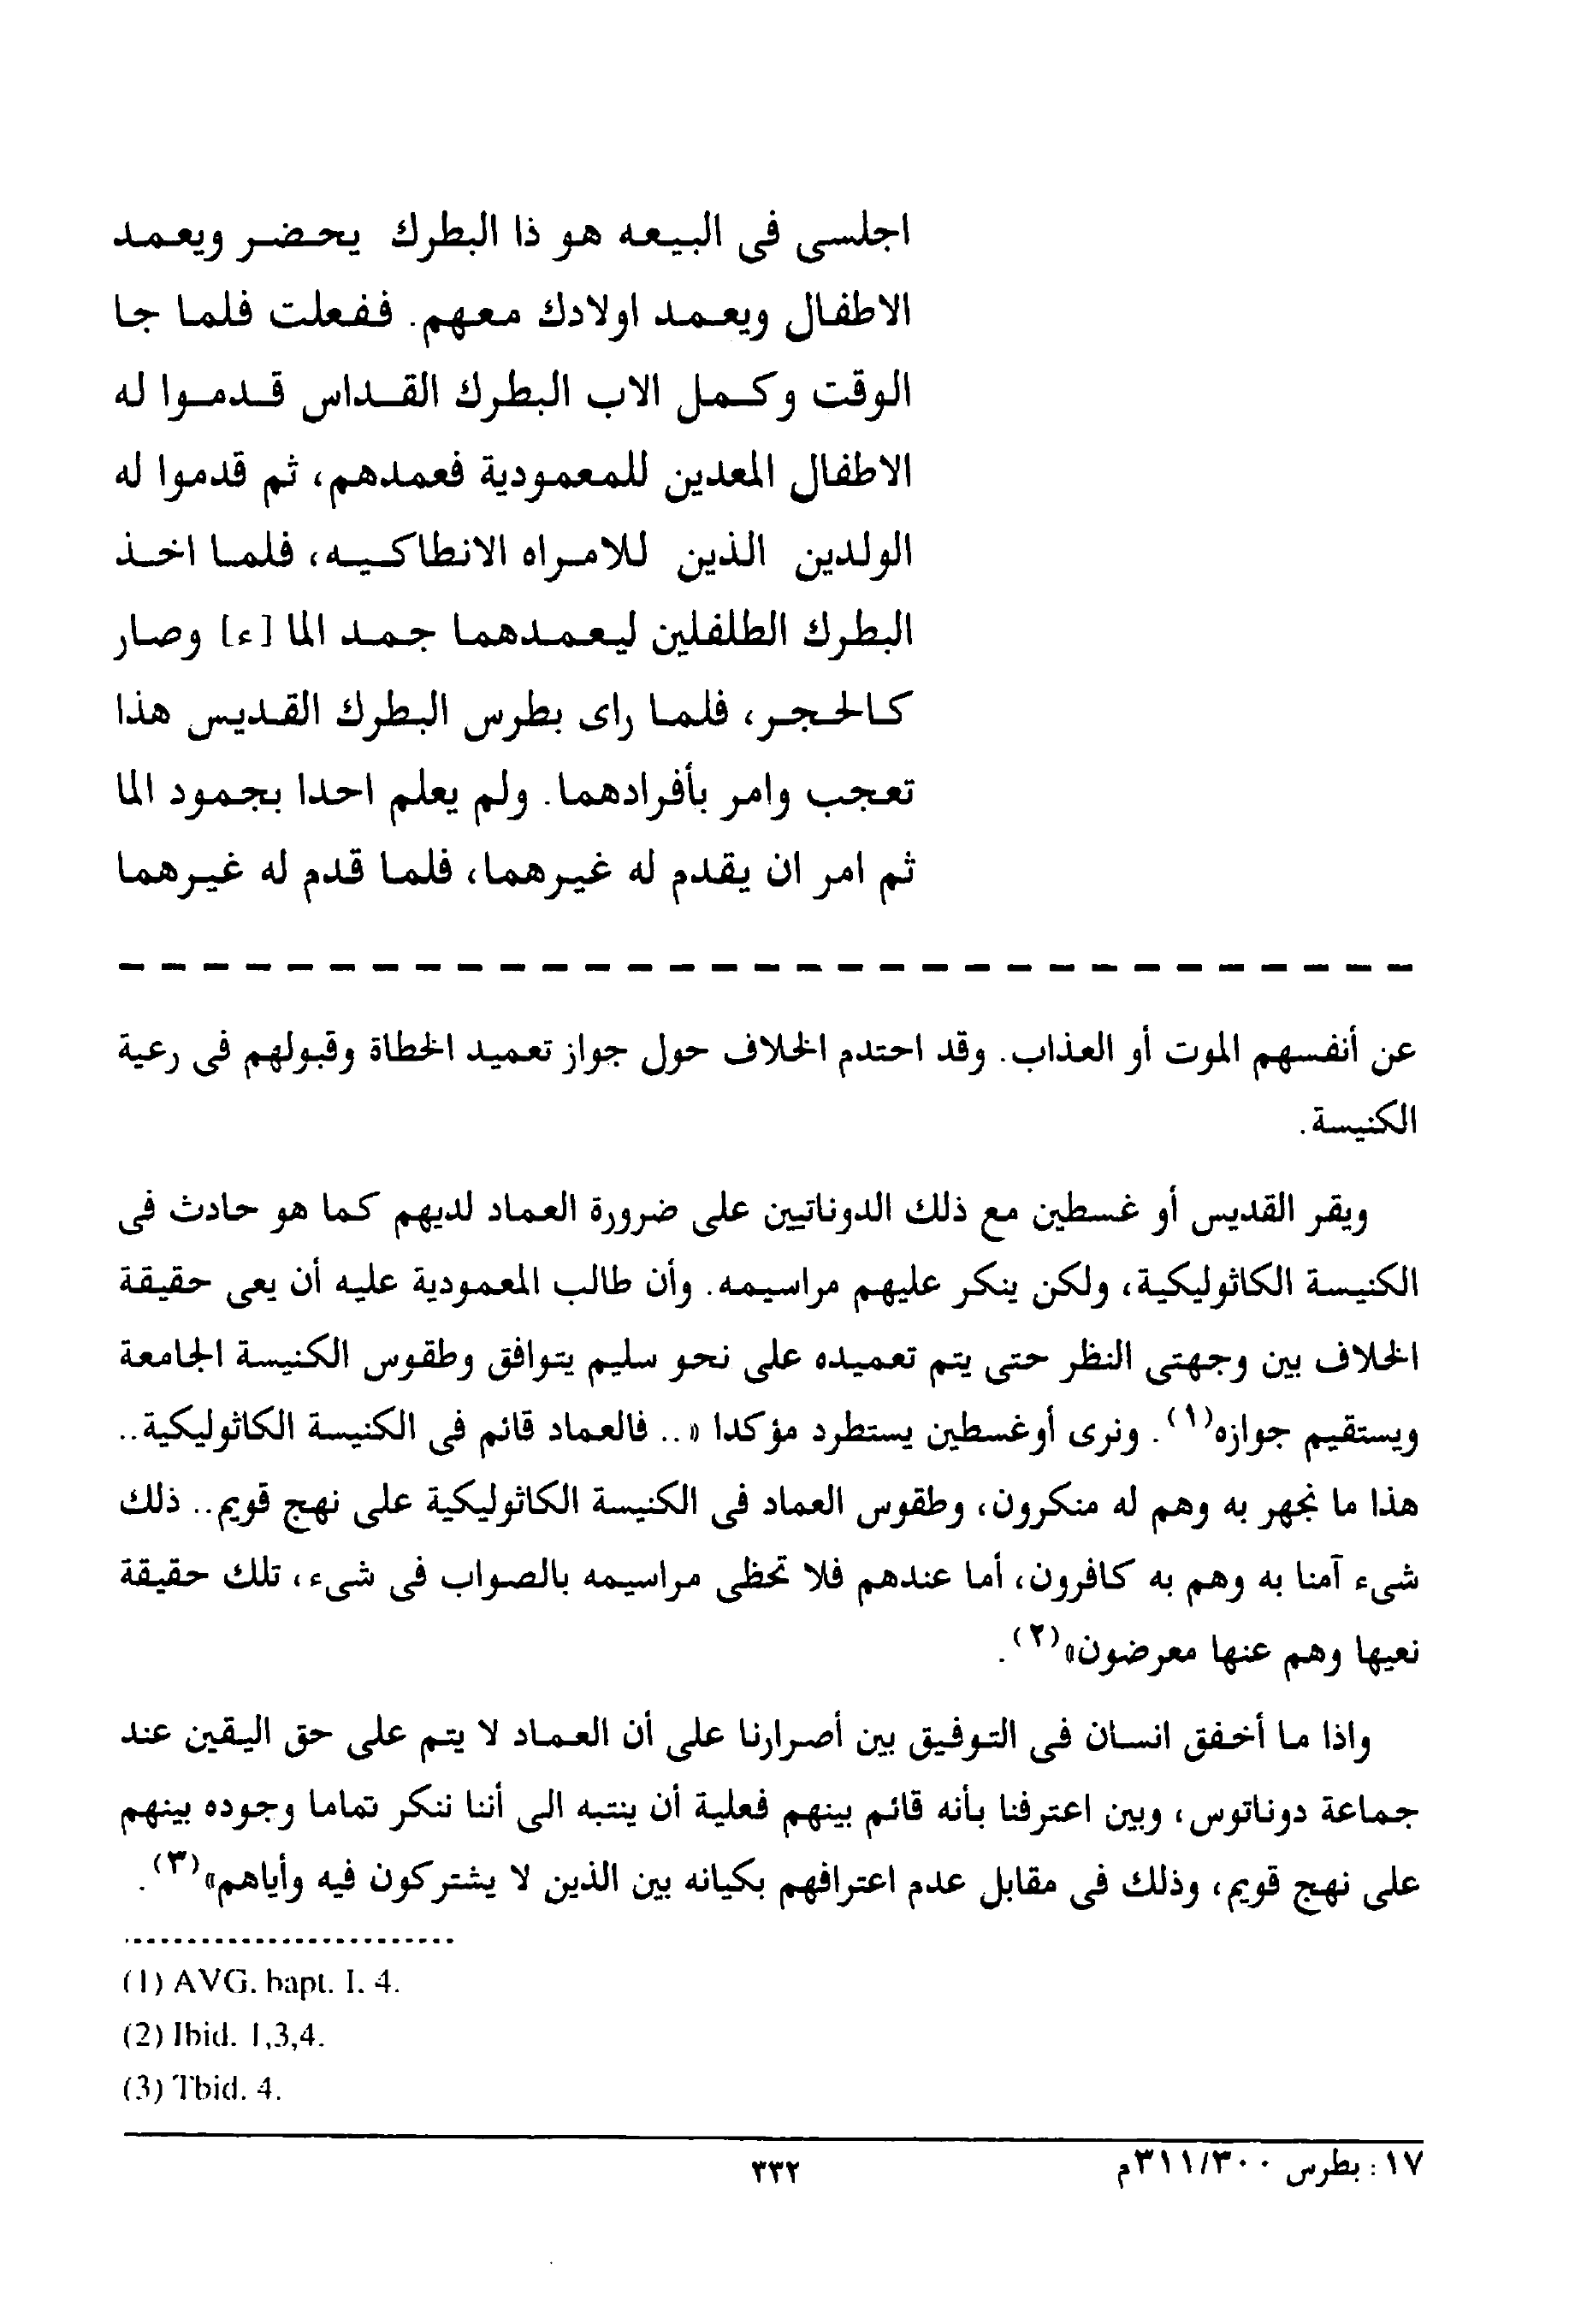 اجلسى فى البيعه هو ذا البطرك يحضر ويعمد
الاطفال ويعمد اولادك معهم. ففعلت فلما جا
الوقت وكمل الاب البطرك القداس قدموا له
الاطفال المعدين للمعمودية فعمدهم، ثم قدموا له
الولدين الذين للامراه الانطاكيه، فلما اخذ
البطرك الطلفلين ليعمدهما جمد الما [ء] وصار
كالحجر، فلما راى بطرس البطرك القديس هذا
تعجب وامر بأفرادهما. ولم يعلم احدا بجمود الما
ثم امر ان يقدم له غيرهما، فلما قدم له غيرهما
عن أنفسهم الموت أو العذاب. وقد احتدم الخلاف حول جواز تعميد الخطاة وقبولهم فى رعية
الكنيسة.
ويقر القديس أو غسطين مع ذلك الدوناتيين على ضرورة العماد لديهم كما هو حادث فى
الكنيسة الكاثوليكية، ولكن ينكر عليهم مراسيمه. وأن طالب المعمودية عليه أن يعى حقيقة
الخلاف بين وجهتى النظر حتى يتم تعميده على نحو سليم يتوافق وطقوس الكنيسة الجامعة
ويستقيم جوازه(١). ونرى أوغسطين يستطرد مؤكدا «.. فالعماد قائم فى الكنيسة الكاثوليكية..
هذا ما نجهر به وهم له منكرون، وطقوس العماد فى الكنيسة الكاثوليكية على نهج قويم.. ذلك
شىء آمنا به وهم به كافرون، أما عندهم فلا تحظى مراسيمه بالصواب فى شىء، تلك حقيقة
نعيها وهم عنها معرضون»(٢).
واذا ما أخفق انسان فى التوفيق بين أصرارنا على أن العماد لا يتم على حق اليقين عند
جماعة دوناتوس، وبين اعترفنا بأنه قائم بينهم فعلية أن ينتبه الى أننا ننكر تماما وجوده بينهم
على نهج قويم، وذلك فى مقابل عدم اعترافهم بكيانه بين الذين لا يشتركون فيه وأياهم»(٣).
(1) AVG. bapt. I. 4.
(2) Ibid. 1,3,4.
(3) Tbid. 4.
١٧: بطرس ٣١١/٣٠٠م
٣٣٢